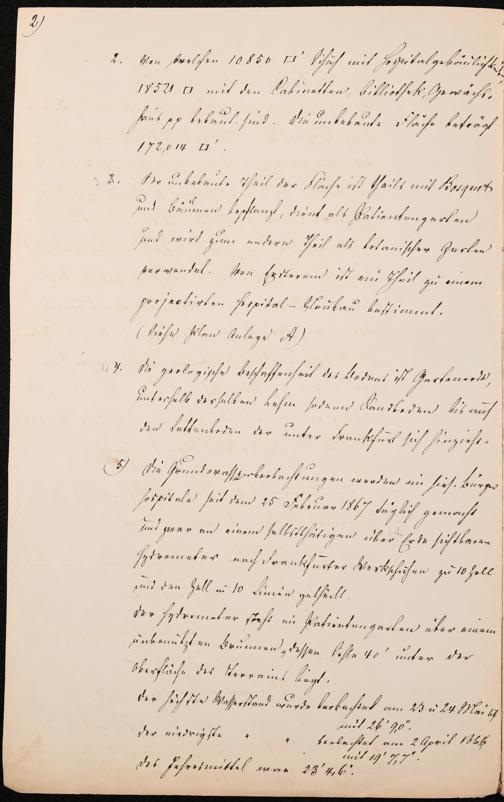 2)
2. Von welchen 10850 □' Schuh mit Hospitalgebäulichkeiten
18521 □ mit den Cabinetten, Bibliothek, Gewächs-
haus pp bebaut sind. Die unbebaute Fläche beträgt
172,014 □'.
3. Der unbebaute Theil der Fläche ist theils mit Bosquet
und Bäumen bepflanzt, dient als Patientengarten
und wird zum andern Theil als botanischer Garten
verwendet. Von Ersterem ist ein Theil zu einem
projectirten Hospital-Neubau bestimmt.
(Siehe Plan Anlage A)
4. Die geologische Beschaffenheit des Bodens ist Gartenerde,
unterhalb derselben Lehm sodann Sandboden bis auf
den Lettenboden der unter Frankfurt sich hinzieht.
5) Die Grundwasserbeobachtungen werden im hies. Bürger
hospitale seit dem 25 Februar 1867 täglich gemacht
und zwar an einem selbstthätigen über Erde sichtbaren
Hydrometer nach Frankfurter Werkschuhen zu 10 Zoll
und den Zoll in 10 Linien getheilt.
Der Hydrometer steht im Patientengarten über einem
unbenutzten Brunnen, dessen Sohle 40' unter der
Oberfläche des Terrains liegt.
Der höchste Wasserstand wurde beobachtet am 23 u 24 Mai
mit 26' 9,0".
der niedrigste " " beobachtet am 2 April
mit 19' 7,7".
Das Jahresmittel war 23' 4,6".